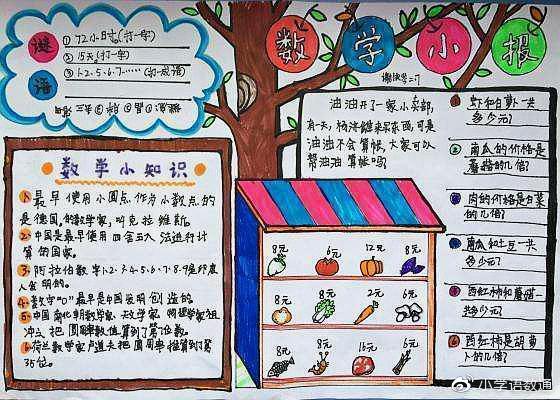 数学小报
谜
语
① 72小时。(打一字)
② 15天。(打一字)
③ 1.2.5.6.7……(打一成语)
数学小知识
最早使用小圆点作为小数点的
是德国的数学家,叫克拉维斯。
中国是最早使用四舍五入法进行计
算的国家。
阿拉伯数字1.2.3.4.5.6.7.8.9是印度
人发明的。
数字"0"最早是中国发明创造的。
中国南北朝数学家、天文学家、物理学家祖
冲之把圆周率值算到了第七位数。
荷兰数学家卢道夫把圆周率推算到了第
35位。
油油开了一家小卖部,
有一天,
来买东西,可是
油油不会算帐,大家可以
帮油油算帐吗?
8元
6元
12元
8元
8元
8元
2元
6元
8元
8元
16元
6元
虾和白萝卜一共
多少元?
南瓜的价格是
蘑菇的几倍?
肉的价格是白菜
的几倍?
南瓜和土豆一共
多少元?
西红柿和蘑菇一
共多少元?
西红柿是胡萝
卜的几倍?
小学语数通